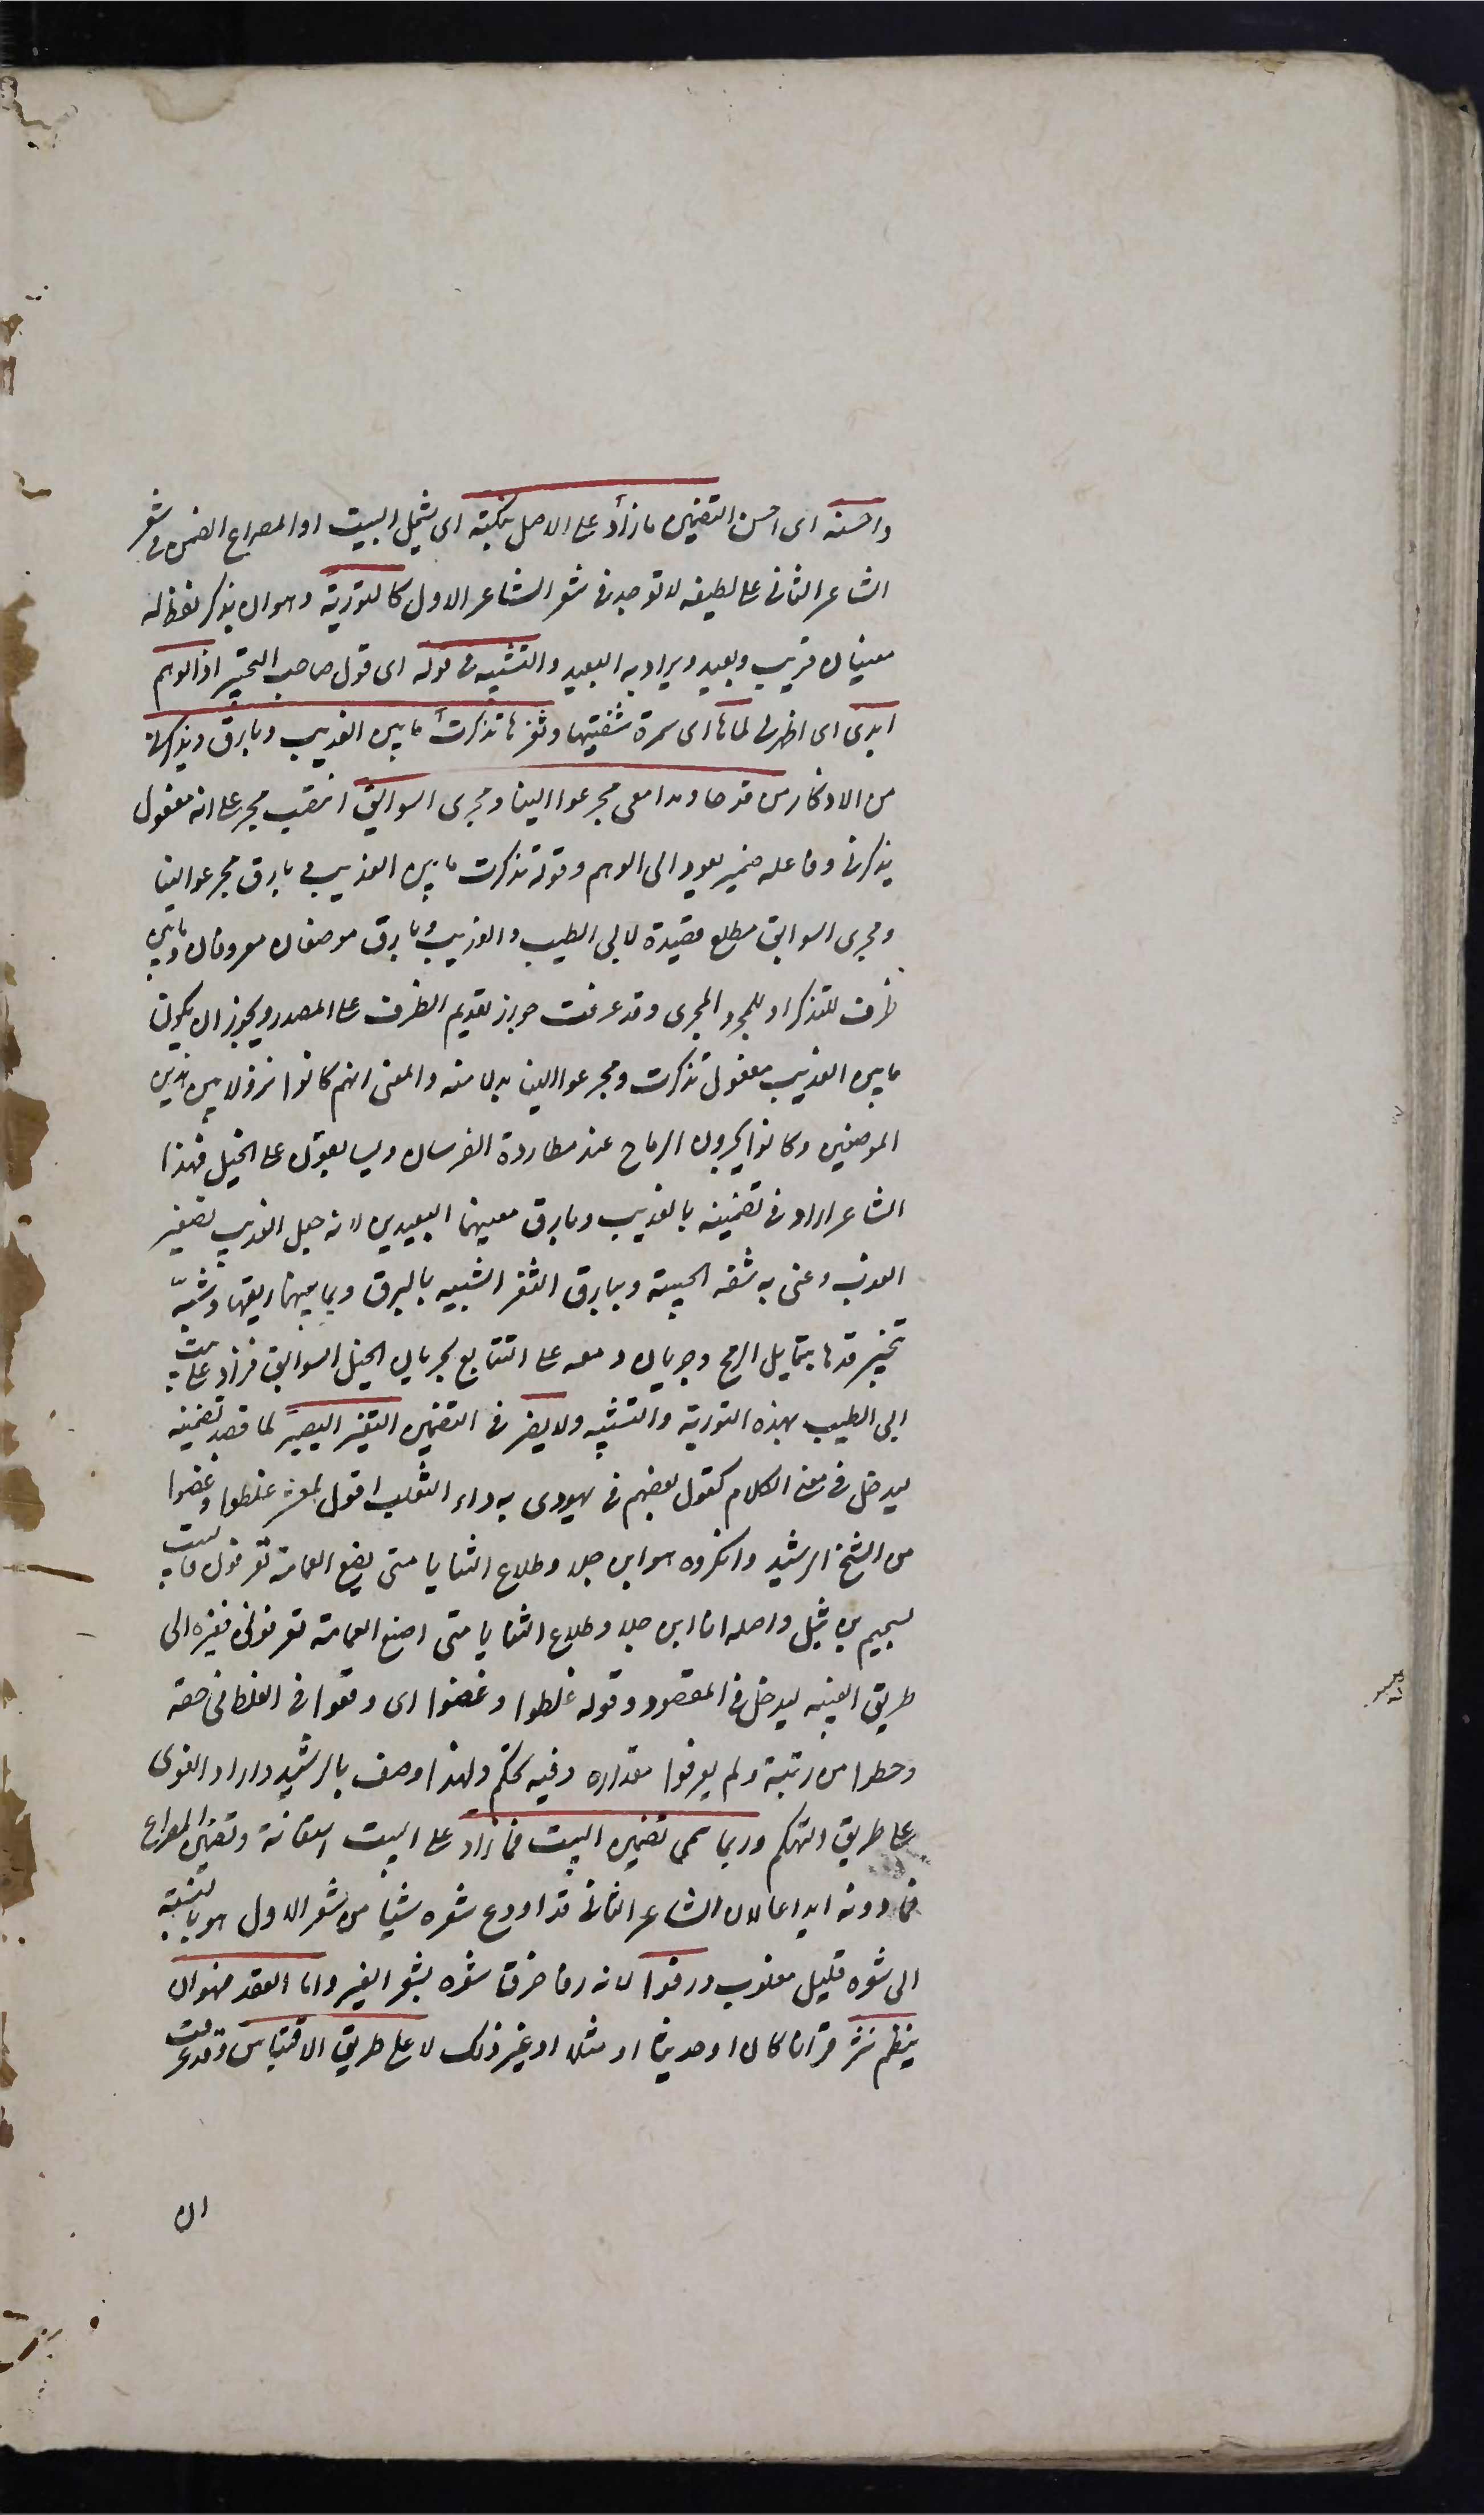 واحسنه اى احسن التضمين ما زاد على الاصل بنكتة اى يشمل البيت او المصراع المضمن فى شعر
الشاعر الثانى على لطيفه لا توجد فى شعر الشاعر الاول كالتورية وهو ان يذكر لفظ له
معنيان قريب وبعيد ويراد به البعيد والتشبيه فى قوله اى قول صاحب التحبير اذا الوهم
ابدى اى اظهر لى لماها اى سمرة شفتيها وثغرها تذكرت ما بين العذيب وبارق ويذكرنى
من الاذكار من قدها ومدامعى مجر عوالينا ومجرى السوابق انتصب مجر على انه مفعول
يذكرنى وفاعله ضمير يعود الى الوهم وقوله تذكرت ما بين العذيب و بارق مجر عوالينا
ومجرى السوابق مطلع قصيدة لابى الطيب والعذيب وبارق موضعان معروفان وما بين
ظرف للتذكر او للمجر والمجرى وقد عرفت جواز تقديم الظرف على المصدر ويجوز ان يكون
ما بين العذيب مفعول تذكرت ومجر عوالينا بدلا منه والمعنى انهم كانوا نزولا بين هذين
الموضعين وكانوا يجرون الرماح عند مطاردة الفرسان ويسابقون على الخيل فهذا
الشاعر اراد فى تضمينه بالعذيب وبارق معنيهما البعيدين لانه جعل العذيب تصغير
العذب وعنى به شفة الحبيبة وببارق الثغر الشبيه بالبرق وبما بينهما ريقها وشبّه
تبختر قدها بتمايل الرمح وجريان دمعه على التتابع بجريان الخيل السوابق فزاد على بيت
ابى الطيب بهذه التورية والتشبيه ولا يضر فى التضمين التغير اليسير لما قصد تضمينه
ليدخل فى معنى الكلام كقول بعضهم فى يهودى به داء الثعلب اقول لمعشر غلطوا وغضوا
من الشيخ الرشيد وانكروه هو ابن جلا وطلاع الثنايا متى يضع العمامة تعرفوه فالبيت
لسحيم بن وثيل واصله انا ابن جلا وطلاع الثنايا متى اضع العمامة تعرفونى فغيره الى
طريق الغيبه ليدخل فى المقصود وقوله غلطوا وغضوا اى وقعوا فى الغلط فى حقه
وحطوا من رتبته ولم يعرفوا مقداره وفيه تهكم ولهذا وصف بالرشيد واراد الغوى
على طريق التهكم وربما سمى تضمين البيت فما زاد على البيت استعانة وتضمين المصراع
فما دونه ايداعا لان الشاعر الثانى قد اودع شعره شيئا من شعر الاول هو بالنسبة
الى شعره قليل مغلوب ورفوا لانه رفا خرق شعره بشعر الغير واما العقد فهو ان
ينظم نثر قرآنا كان او حديثا او مثلا او غير ذلك لا على طريق الاقتباس وقد عرفت
ان